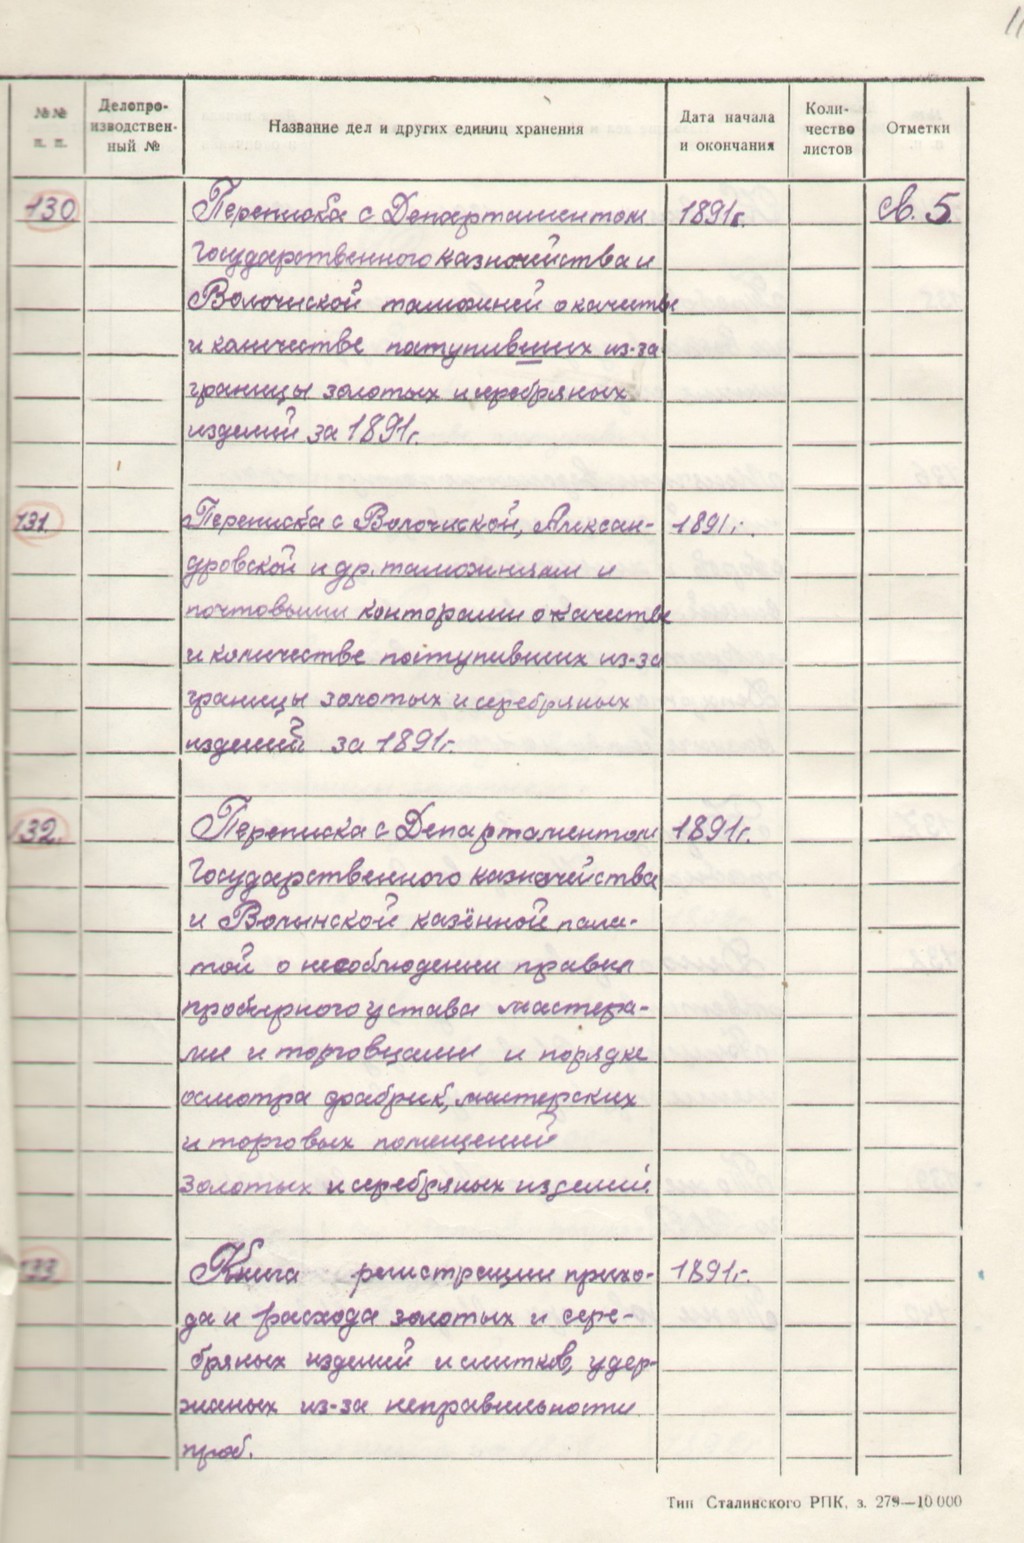 №№ п. п.
Делопро-
изводствен-
ный №
Название дел и других единиц хранения
Дата начала
и окончания
Коли-
чество
листов
Отметки
130 Переписка с Департаментом 1891г. св. 5
Государственного казначейства и
Волочиской таможней о качестве
и количестве поступивших из-за
границы золотых и серебряных
изделий за 1891г.
131. Переписка с Волочиской, Алексан- 1891г.
дровской и др. таможнями и
почтовыми конторами о качестве
и количестве поступивших из-за
границы золотых и серебряных
изделий за 1891г.
132. Переписка с Департаментом 1891г.
Государственного казначейства
и Волынской казённой пала-
той о несоблюдении правил
пробирного устава мастера-
ми и торговцами и порядке
осмотра фабрик, мастерских
и торговых помещений
золотых и серебряных изделий.
133. Книга регистрации прихо- 1891г.
да и расхода золотых и сере-
бряных изделий и слитков, удер-
жаных из-за неправильности
проб.
Тип Сталинского РПК, з. 279—10 000